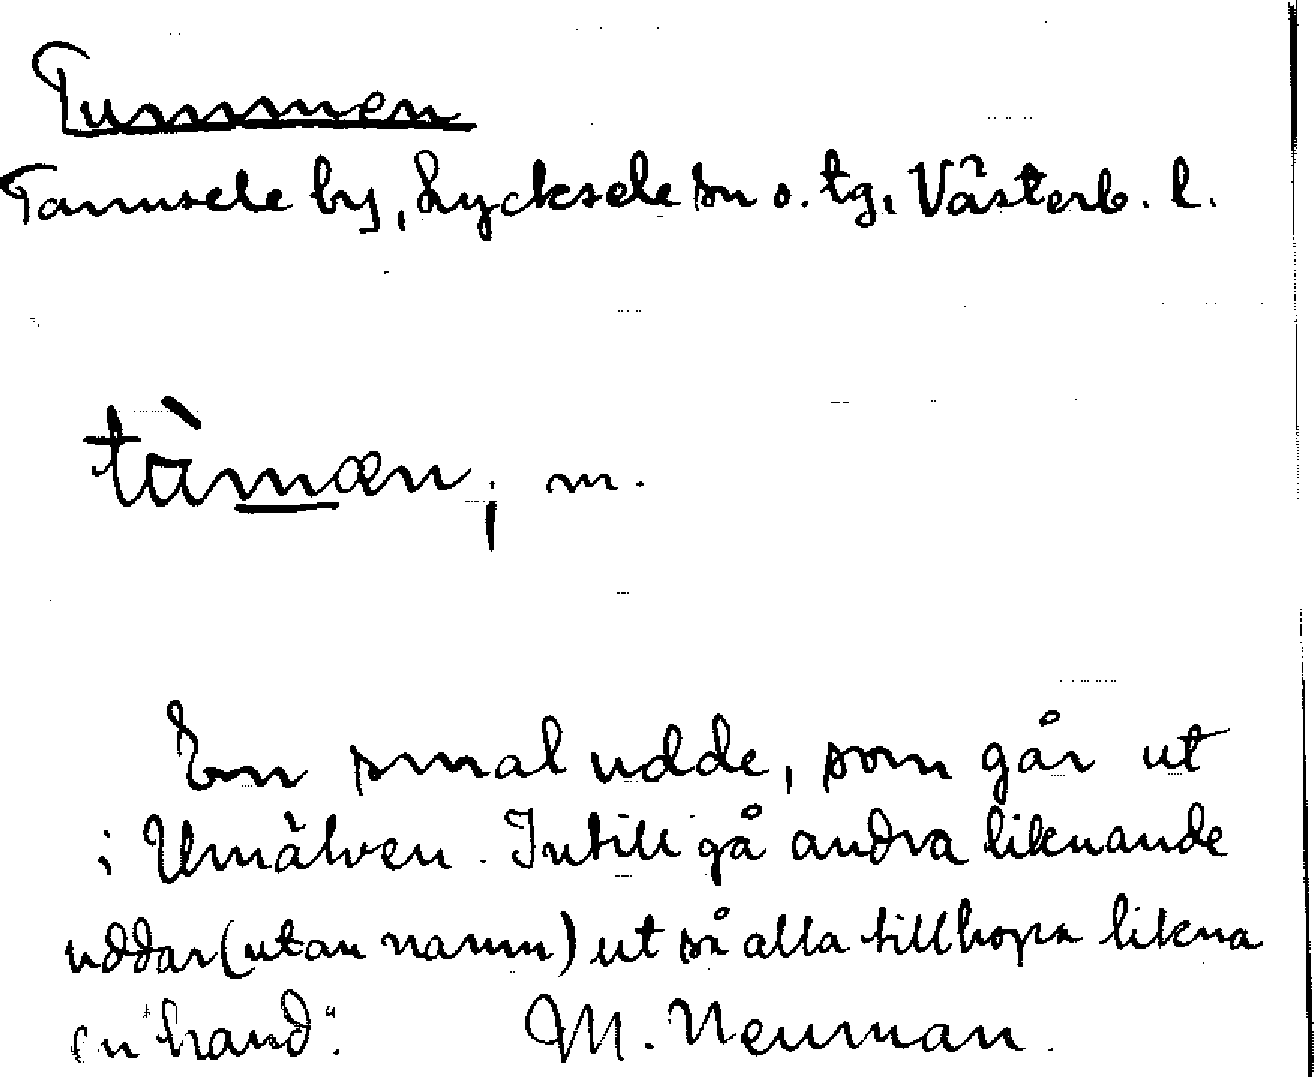 Tummen
Tannsele by, Lycksele sn o. tg, Västerb. l.
tùmæn, m.
En smal udde, som går ut
i Umälven. Intill gå andra liknande
uddar (utan namn) ut så alla tillhopa likna
en "hand".  M. Neuman.